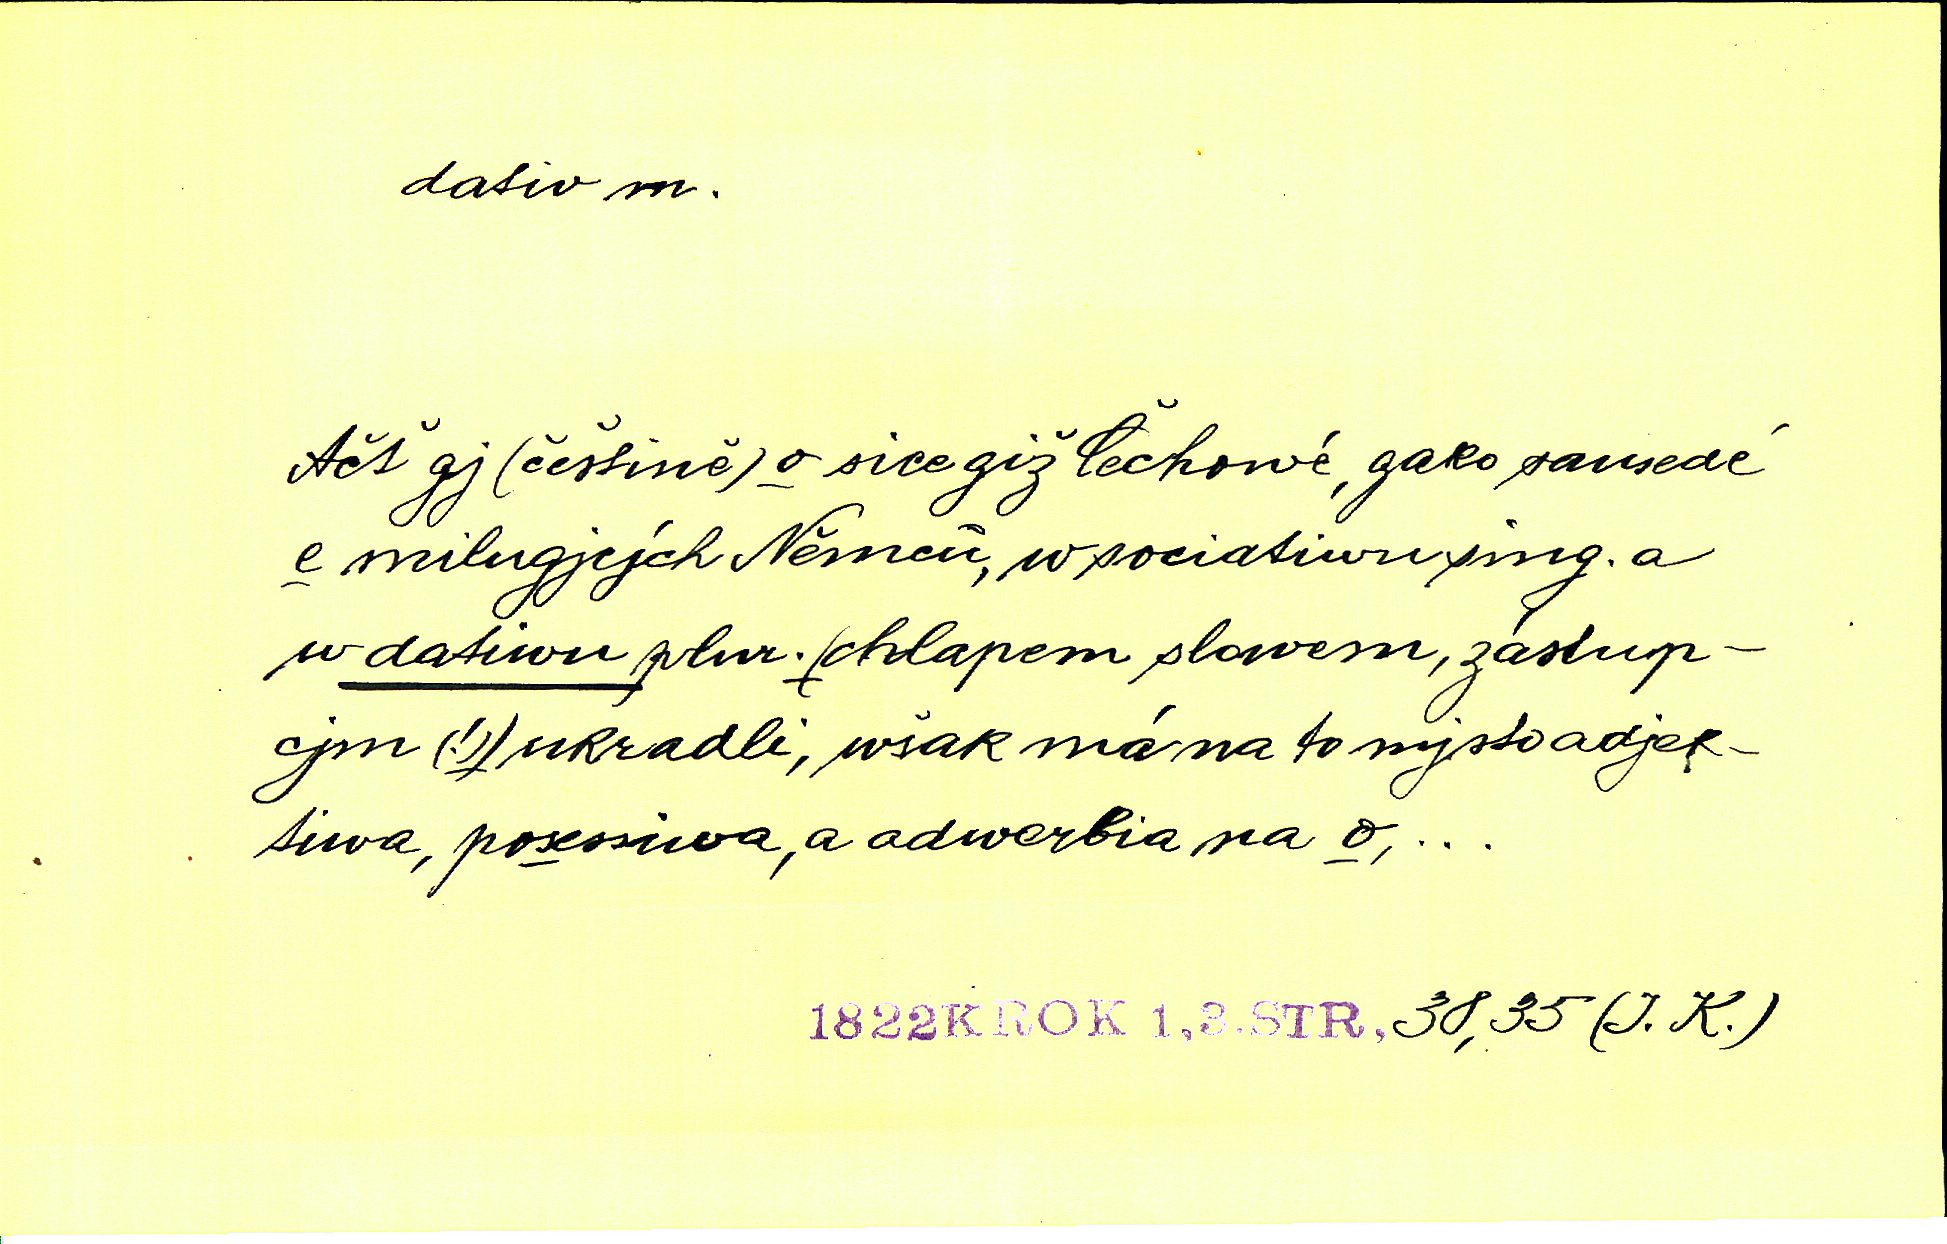 dativ m.
Ačť gj (češtině) o sice giž Čechowé, gako sausedé
e milugjcých Němců, w sociatiwu sing. a
w dativu plur. (chlapem slowem, zástup-
cjm (!)) ukradli, wšak má na to mjsto adjek-
tiwa, posessiwa, a adwerbia na o, ...
1822 KROK 1,3. STR, 38,35 (J. K.)